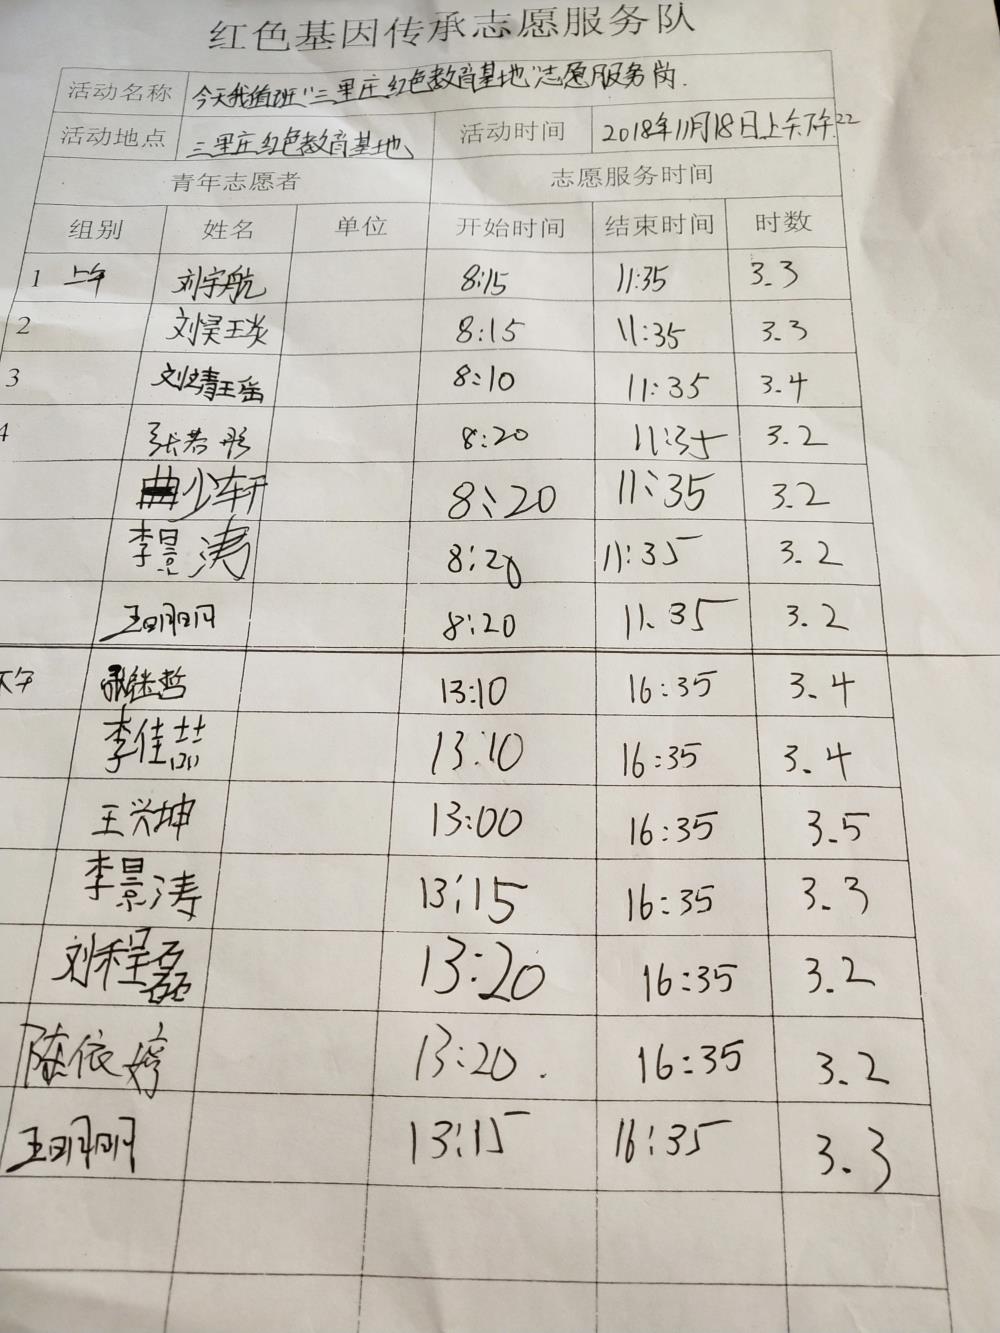 红色基因传承志愿服务队
活动名称 今天我值班"三里庄红色教育基地"志愿服务岗.
活动地点 三里庄红色教育基地 活动时间 2018年11月18日上午下午22
青年志愿者 志愿服务时间
组别 姓名 单位 开始时间 结束时间 时数
1 上午 刘宇航 8:15 11:35 3.3
2 刘昊王炎 8:15 11:35 3.3
3 刘婧瑶 8:10 11:35 3.4
4 张若彤 8:20 11:35 3.2
曲少轩 8:20 11:35 3.2
李景涛 8:20 11:35 3.2
王明明 8:20 11.35 3.2
下午 继哲 13:10 16:35 3.4
李佳喆 13:10 16:35 3.4
王兴坤 13:00 16:35 3.5
李景涛 13:15 16:35 3.3
刘程磊 13:20 16:35 3.2
陈依婷 13:20. 16:35 3.2
王明明 13:15 16:35 3.3